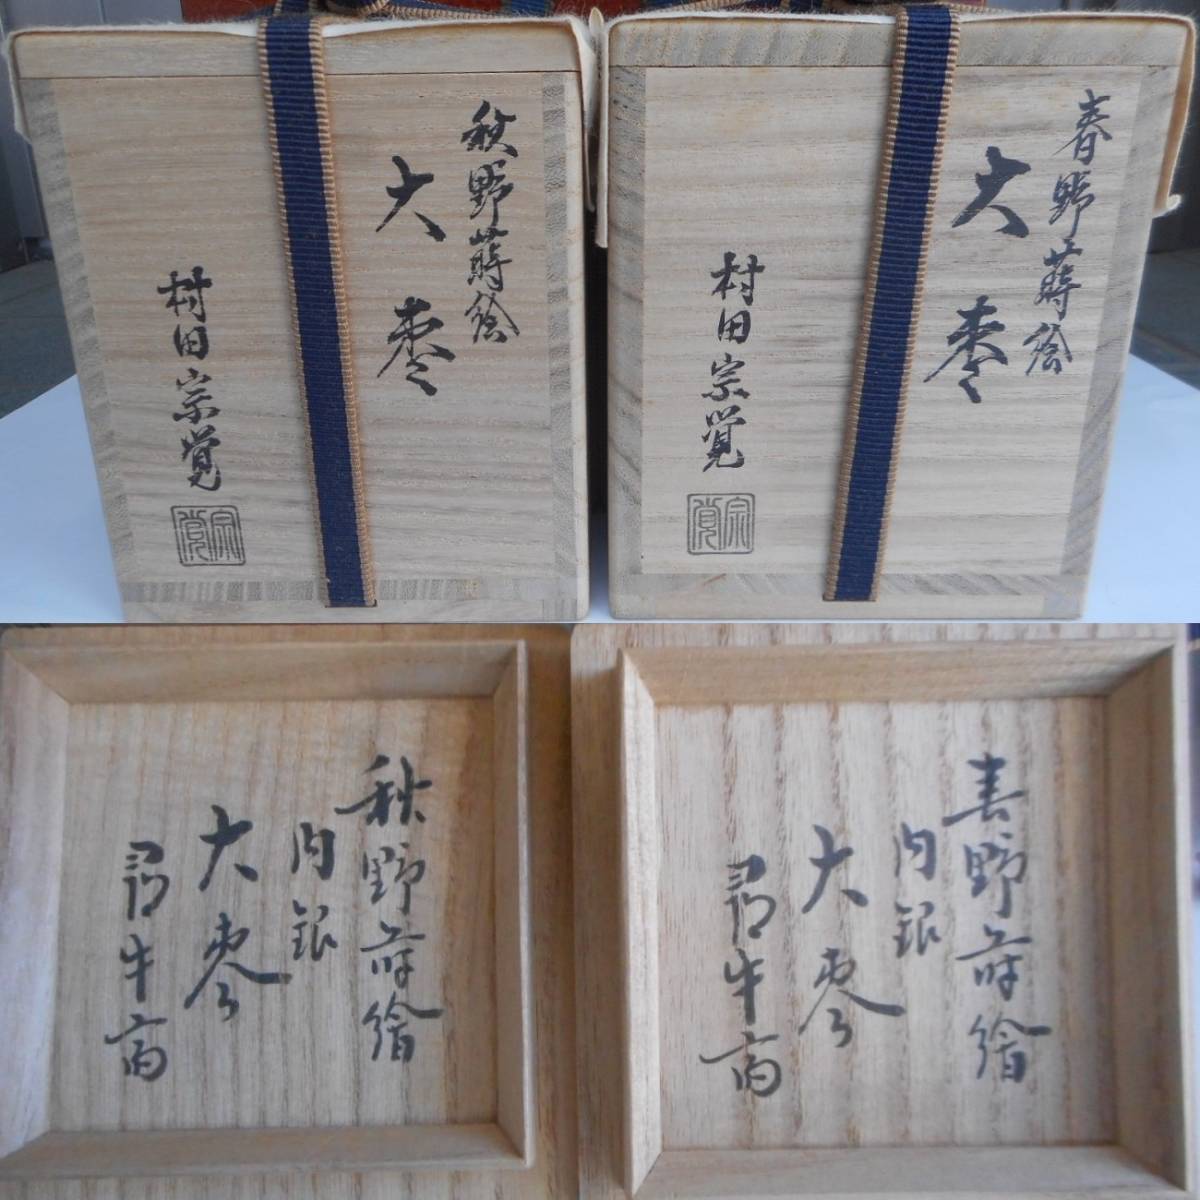 秋野蒔絵
大棗
村田宗覚
宗覚
春野蒔絵
大棗
村田宗覚
宗覚
秋野蒔繪
内銀
大棗
尋牛斎
春野蒔繪
内銀
大棗
尋牛斎